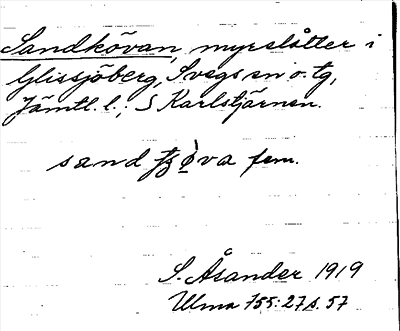 Sandkövan, myrslåtter i
Glissjöberg, Svegs sn o. tg,
Jämtl. l.; S Karlstjärnen.
sand va fem.
S. Åsander 1919
Ulma 155:27 s. 57